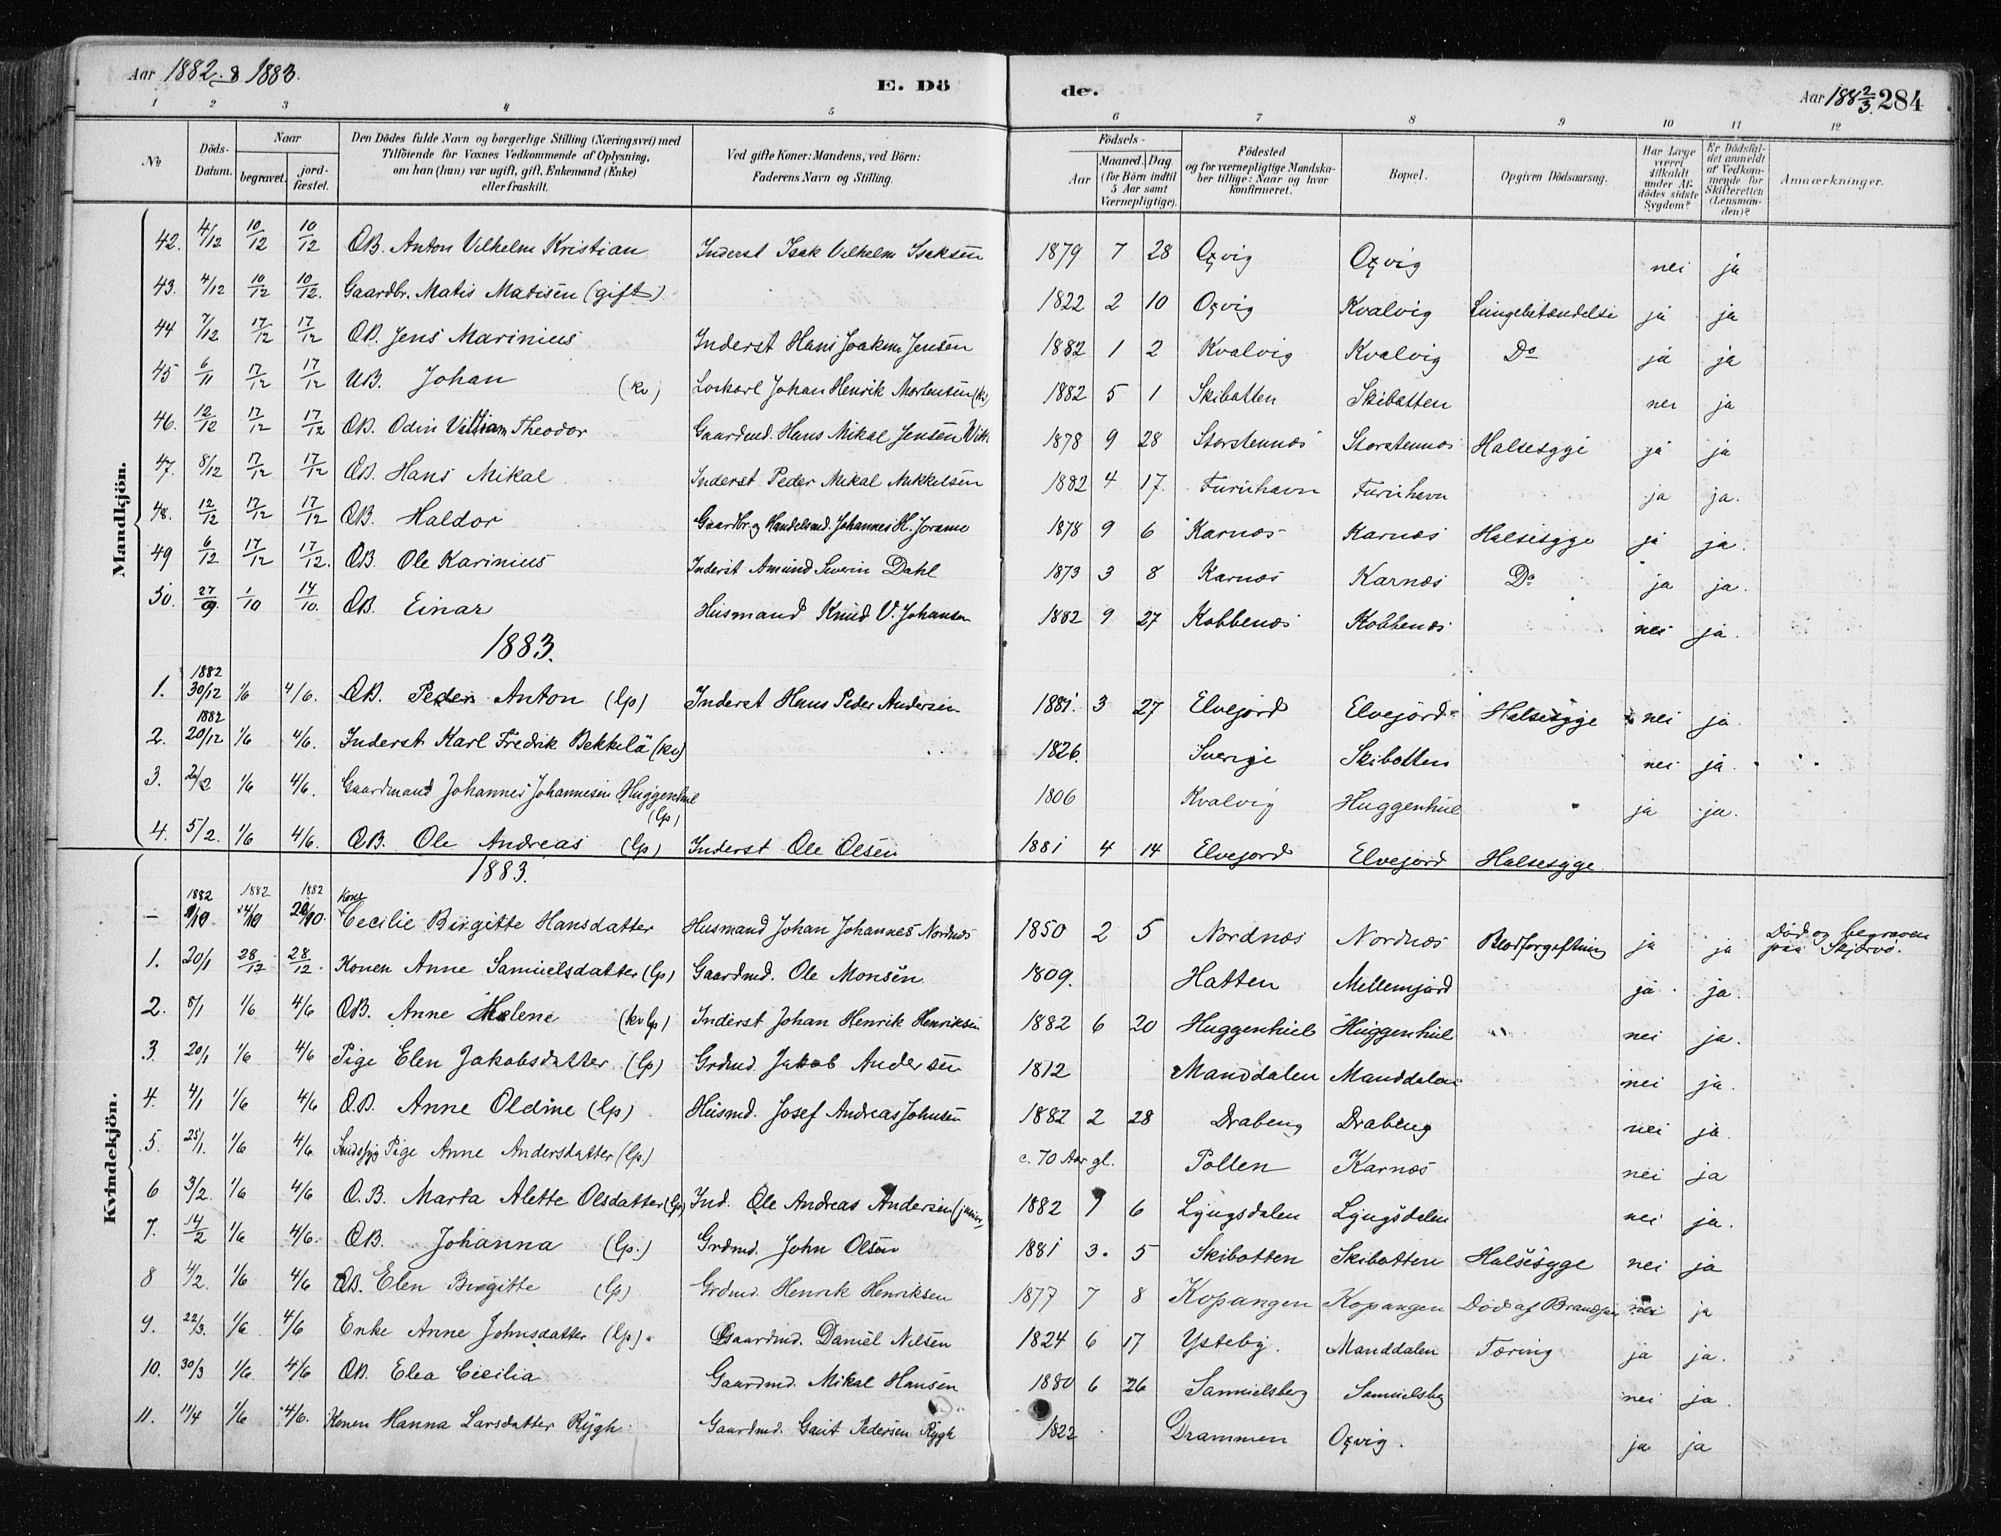 Aar 1882 & 1883.
E. Döde.
Aar 1882/3. 284
1 2 3 4 5 6 7 8 9 10 11 12
No
Döds-Datum.
Naar
begravet.
jord-fæstet.
Den Dödes fulde Navn og borgerlige Stilling (Næringsvei) med Tilföiende for Voxnes Vedkommende af Oplysning, om han (hun) var ugift, gift, Enkemand (Enke) eller fraskilt.
Ved gifte Koner: Mandens, ved Börn: Faderens Navn og Stilling.
Födsels-
Aar
Maaned. Dag. (for Börn indtil 5 Aar samt Værnepligtige).
Födested og for værnepligtige Mandskaber tillige: Naar og hvor konfirmeret.
Bopæl.
Opgiven Dödsaarsag.
Har Læge været tilkaldt under Afdödes sidste Sygdom?
Er Dödsfaldet anmeldt af Vedkommende for Skifteretten (Lensmanden)?
Anmærkninger.
Mandkjön.
42. 4/12 10/12 10/12 ÆB. Anton Vilhelm Kristian Inderst Isak Vilhelm Isaksen 1879 7 28 Oxvig Oxvig nei ja
43. 4/12 10/12 10/12. Gaardbr. Matis Matisen (gift) 1822 2 10 Oxvig Kvalvig Lungebetændelse ja ja
44 7/12 17/12 17/12 ÆB. Jens Marinius Inderst Hans Joakim Jensen 1882 1 2 Kvalvig Kvalvig Do ja ja
45 6/11 17/12 17/12 UB. Johan (kv) Loskarl Johan Henrik Mortensen (kv) 1882 5 1 Skibotten Skibotten nei ja
46. 12/12 17/12 17/12 ÆB. Odin William Theodor Gaardmd. Hans Mikal Jensen Vik 1878 9 28 Storstennæs Storstennæs Halsesyge ja ja
47. 8/12 17/12 17/12 ÆB. Hans Mikal Inderst Peder Mikal Mikkelsen 1882 4 17. Furuhavn Furuhavn ja ja.
48. 12/12 17/12 17/12 ÆB. Haldor Gaardbr. og Handelsmd. Johannes H. 1878 9 6 Karnæs Karnæs Halsesyge ja ja.
49 6/12 17/12 17/12. ÆB. Ole Karinius Inderst Amund Severin Dahl 1873 3 8 Karnæs Karnæs Do ja ja.
50. 27/9. 1/10 14/10. ÆB. Einar Husmand Knud V. Johansen 1882 9 27 Kobbenæs Kobbenæs nei ja.
1883.
1. 1882 30/12 1/6 4/6. ÆB. Peder Anton (lp) Inderst Hans Peder Andersen 1881. 3 27 Elvejord Elvejord Halsesyge nei ja.
2. 1882 20/12 1/6 4/6. Inderst Karl Fredrik Bekkelä (kv) 1826. Sverige Skibotten nei ja.
3. 2/2 1/6 4/6. Gaardmand Johannes Johannesen Huggenhul (lp) 1806 Kvalvig Huggenhul ja ja.
4. 5/2. 1/6 4/6. ÆB. Ole Andreas (lp) Inderst Ole Olsen 1881 4 14 Elvejord Elvejord Halsesyge
1883.
Kvindekjön.
– 1882 1882 1882 Kone Cecilie Birgitte Hansdatter Husmand Johan Johannes Nordnæs 1850 2 5 Nordnæs Nordnæs Blodforgiftning ja ja Död og begraven paa Skjervö.
1. 20/1 28/12 28/12. Konen Anne Samuelsdatter (lp) Gaardmd. Ole Monsen 1809. Hatten Mellemjord ja ja.
2. 8/1 1/6 4/6 ÆB. Anne Helene (kv lp) Inderst Johan Henrik Henriksen 1882 6 20 Huggenhul Huggenhul nei ja.
3. 20/1 1/6 4/6 Pige Elen Jakobsdatter (lp) Grdmd. Jakob Andersen 1812 Manddalen Manddalen nei ja.
4. 4/1 1/6 4/6 Æ.B. Anne Oldine (lp) Husmd. Josef Andreas Johnsen 1882 2 28 Drabeng Drabeng nei ja.
5. 25/1. 1/6 4/6. Sindssyg Pige Anne Andersdatter (lp.) c. 70 Aar gl. Pollen Karnæs nei ja
6 3/2. 1/6 4/6 Æ.B. Marta Alette Olsdatter (lp) Ind. Ole Andreas Andersen (junior) 1882 7 6 Lyngsdalen Lyngsdalen nei ja.
7. 14/2 1/6 4/6. ÆB. Johanna (lp.) Grdmd. John Olsen 1881 3. 5 Skibotten Skibotten Halsesyge nei ja
8 4/2. 1/6 4/6 ÆB. Elen Birgitte (lp) Grdmd. Henrik Henriksen 1877 7 8 Kopangen Kopangen Död af nei ja
9. 22/3. 1/6 4/6 Enke Anne Johnsdatter (lp). Gaardmd. Daniel Nilsen 1824 6 17 Ysteby. Manddalen Tæring ja ja.
10. 30/3 1/6 4/6 ÆB. Elea Cecilia Gaardmd. Mikal Hansen 1880 6 26 Samuelsberg Samuelsbg nei ja.
11. 11/4 1/6 4/6. Konen Hanna Larsdatter Rygh Gaardmd. Gaut Pedersen Rygh 1822 Drammen Oxvig. ja ja